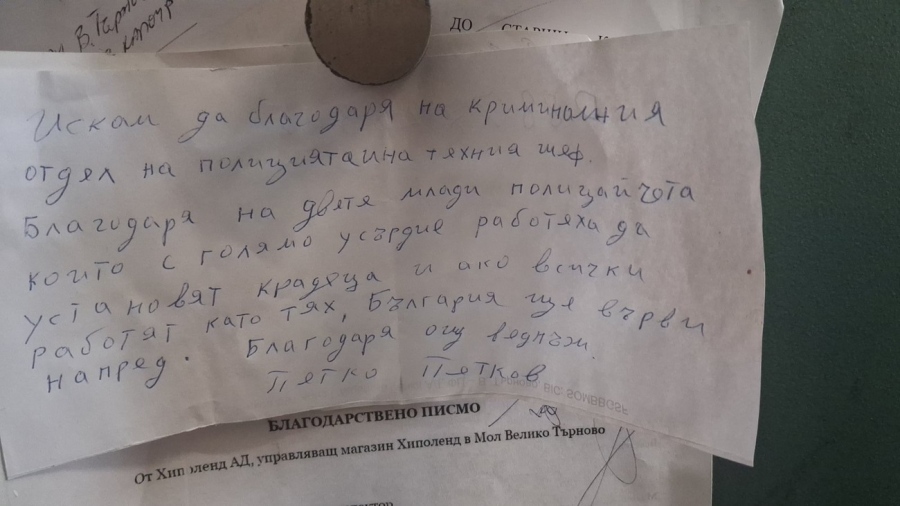 В. Търно
ДО
Искам да благодаря на криминалния
отдел на полицията и на техния шеф.
Благодаря на двете млади полицайчета
които с голямо усърдие работеха да
установят крадеца и ако всички
работят като тях, България ще върви
напред. Благодаря още веднъж.
Петко Петков
БЛАГОДАРСТВЕНО ПИСМО
От Хиполенд АД, управляващ магазин Хиполенд в Мол Велико Търново